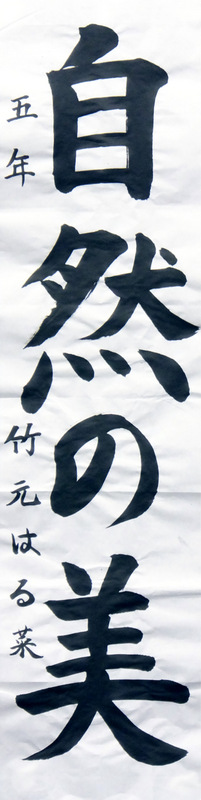 自然の美
五年 竹元はる菜